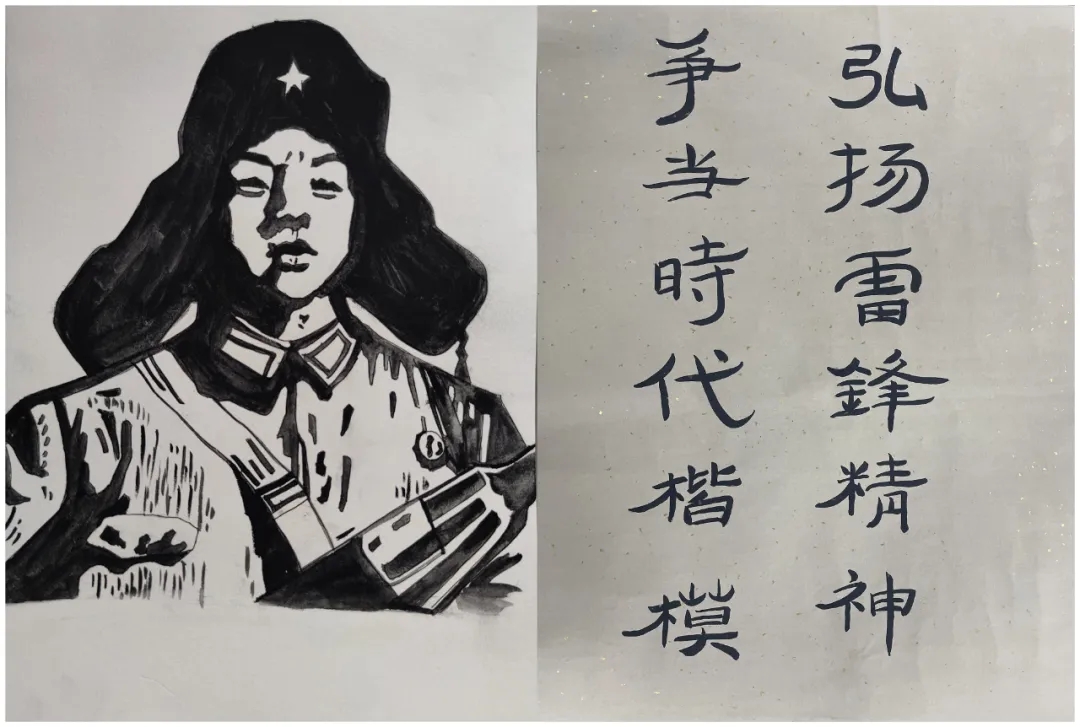 弘扬雷鋒精神
争当時代楷模